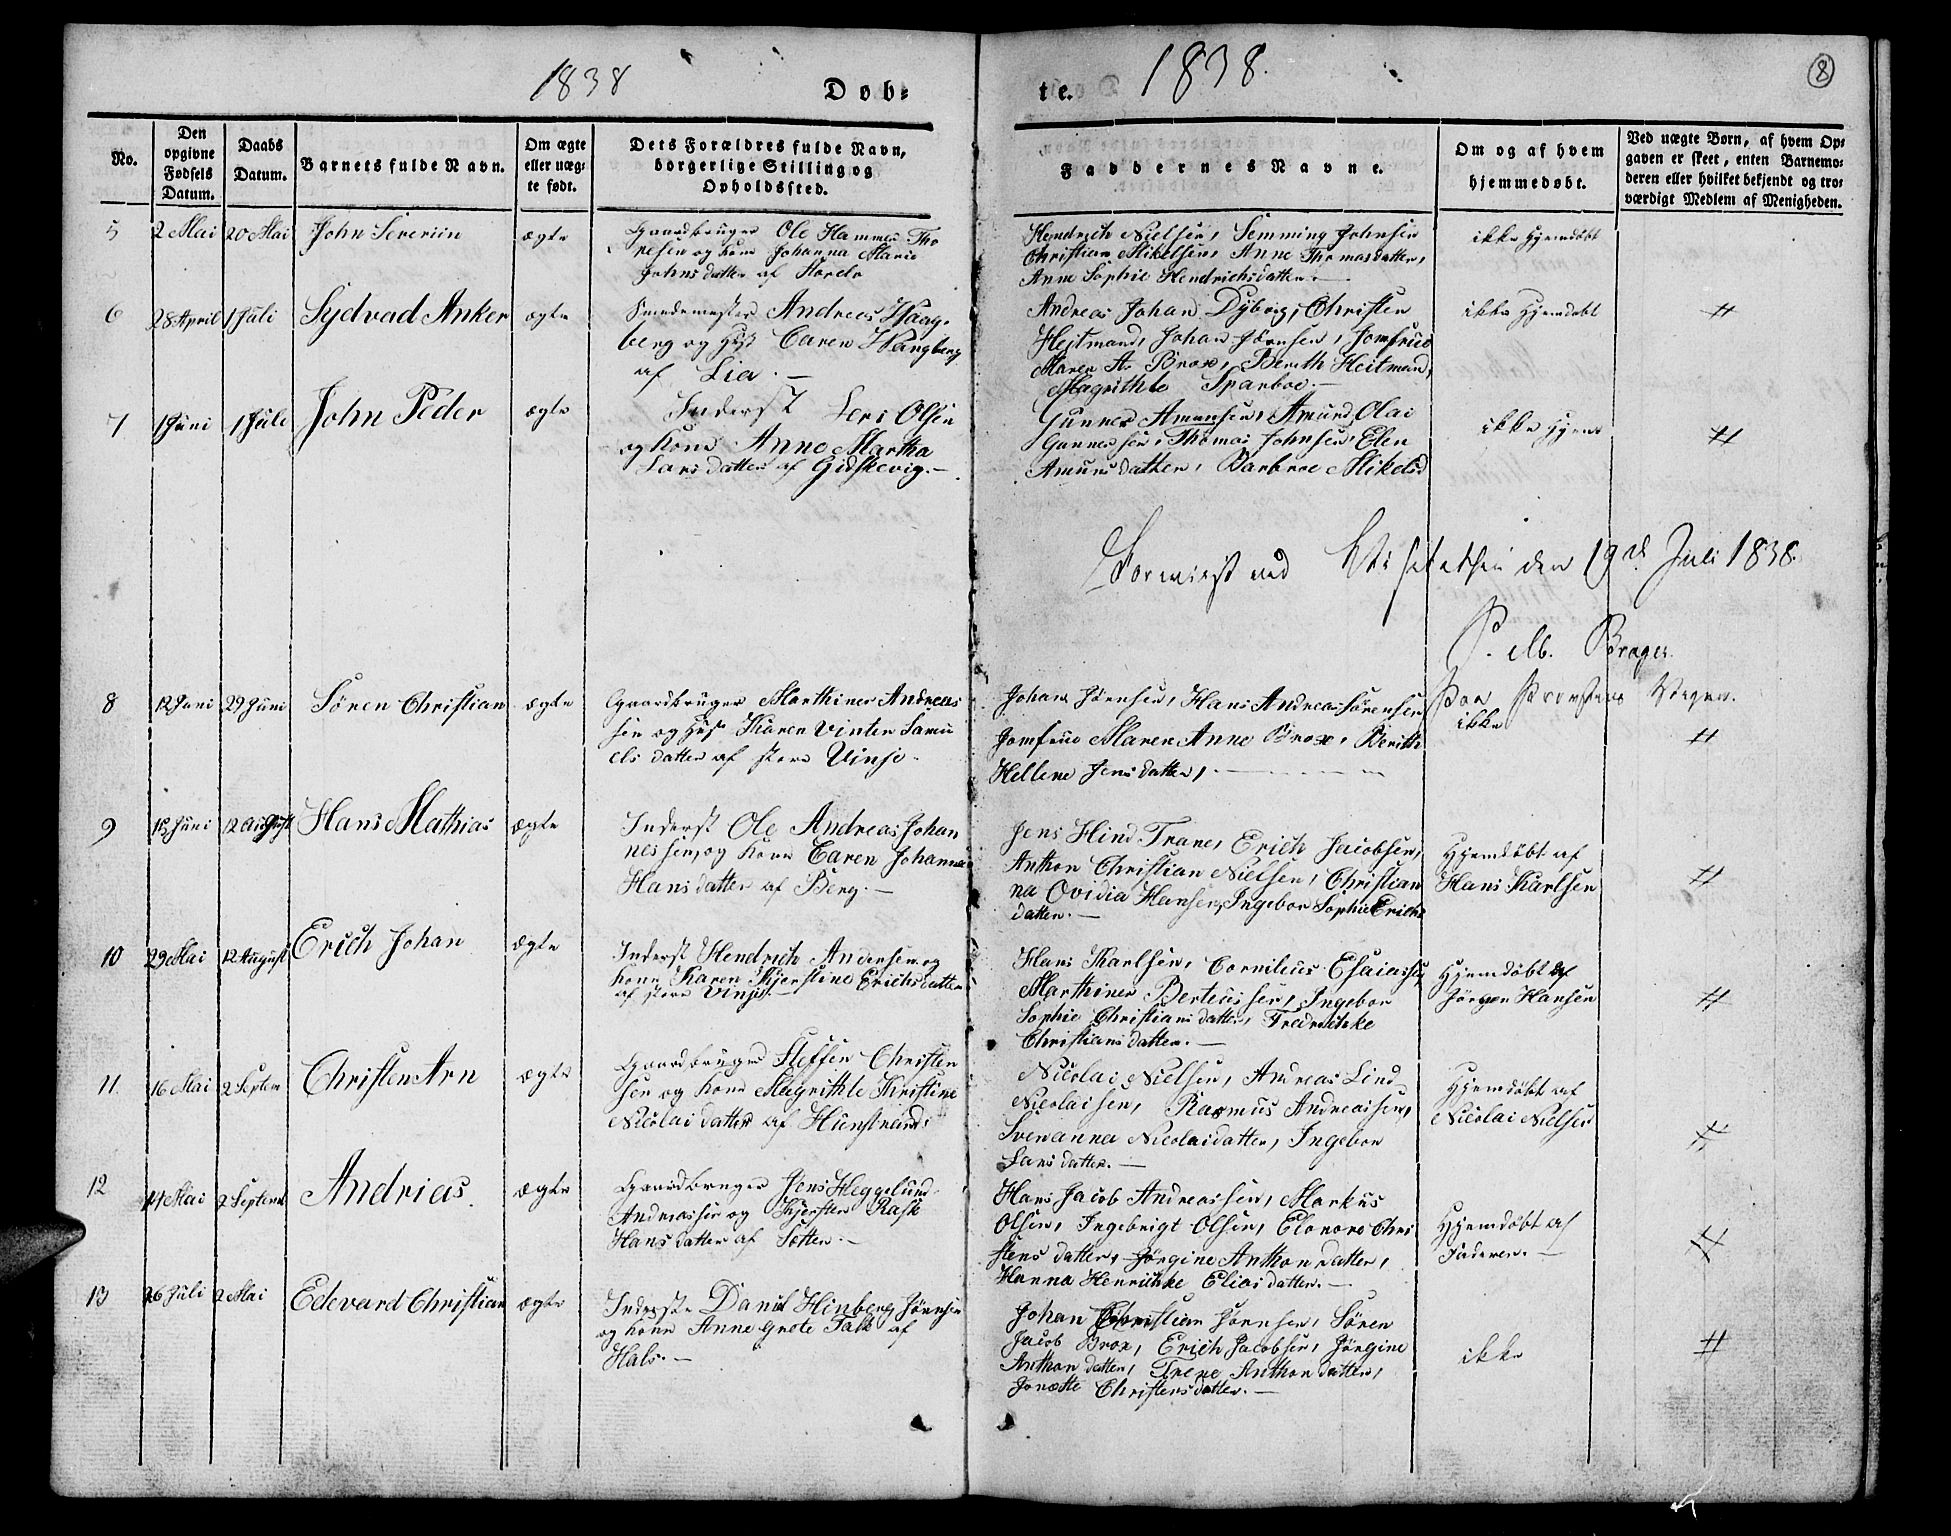 1838
Døb=
te.
1838.
8
No.
Den opgivne Fødsels Datum.
Daabs Datum.
Barnets fulde Navn.
Om ægte eller uæg- te født.
Dets Forældres fulde Navn, borgerlige Stilling og Opholdssted.
Faddernes Navne.
Om og af hvem hjemmedøbt.
Ved uægte Børn, af hvem Op- gaven er skeet, enten Barnemo- deren eller hvilket bekjendt og tro- værdigt Medlem af Menigheden.
5 2 Mai 20 Mai John Severiin ægte
Gaardbruger Ole Hammer Tho
resen og Kone Johanna Marie
Johns datter af
Hendrich Nielsen, Semming Johnsen
Christian Mikelsen, Anne Thomasdatter,
Anne Sophie Hendrichsdatter.
ikke Hjemdøbt
6 28 April 1 Juli Sydvad Anker ægte
Smedemester Andreas Haag-
berg og Hust Caren Haagberg
af Lia. —
Andreas Johan Dyborg, Christen
Hejtmand, Johan Jørnsen, Jomfrue
Maren A. Brox, Berith Heitmand,
Magrithte Sparboe. —
ikke Hjemdøbt
#
7 1 Juni 1 Juli John Peder ægte
Inderst Lers Olsen
og Kone Anne Martha
Lars datter af Gidskevig. —
Gunner Amunsen, Amund Olai
Gunnersen, Thomas Johnsen, Elen
Amuns datter, Barbroe Mikelsd
ikke Hjem
#
ved Visitatsen den 19de Juli 1838.
P. M. Brager.
Paa Provstens Vegne.
8 12 Juni 29 Juni Sören Christian ægte
Gaardbruger Marthines Andreas
sen og Hust Karen Vinter Samu
els datter af store Vinje.
Johan Jörnsen, Hans Andreas Sörensen
Jomfrue Maren Anne Brox, Berith
Hellene Jens datter, . —
ikke
#
9 12 August Hans Mathias ægte
Inderst Ole Andreas Johan
nessen, og Kone Caren Johanna
Hans datter af Berg. —
Jens Hind Trane, Erich Jacobsen,
Anthon Christian Nielsen, Christian
na Ovidia Hansen, Ingebor Sophie Erichs
datter. —
Hjemdøbt af
Hans Karlsen
#
10 29 Mai 12 August Erich Johan ægte
Inderst Hendrich Andersen og
Kone Karen Kjerstine Erichsdatter
af store Vinje. —
Hans Karlsen, Cornileus Esaiassen,
Marthines Berteussen, Ingebor
Sophie Christians datter, Fredrichke
Christians datter. —
Hjemdøbt af
Jörgen Hansen
#
11. 16 Mai 2 Septem Christen Arn ægte
Gaardbruger Steffen Christen
sen og Kone Magrithte Kirstine
Nicolai datter af Hunstrand.
Nicolai Nielsen, Andreas Lind
Nicolaisen, Rasmus Andreassen,
Sveranna Nicolaidatter, Ingebor
Lars datter. —
Hjemdøbt af
Nicolai Nielsen
#
12 14 Mai 2 Septemb Andrias. ægte
Gaardbruger Jens Heggelund
Andreassen og Kjersten Rask
Hans datter af Sætter. —
Hans Jacob Andreassen, Markus
Olsen, Ingebrigt Olsen, Elonore Chri
stens datter, Jörgine Anthon datter,
Hanna Henrichke Elias datter. —
Hjemdøbt af
Faderen. —
#
13 26 Juli 2 Mai Edevard Christian ægte
Inderste Danil Hinberg Jörnsen
og Kone Anne Grete Falk af
Hals. —
Johan Christian Jörnsen, Sören
Jacob Brox, Erich Jacobsen, Jörgine
Anthon datter, Trene Anthon datter,
Jonætte Christens datter. —
ikke
#